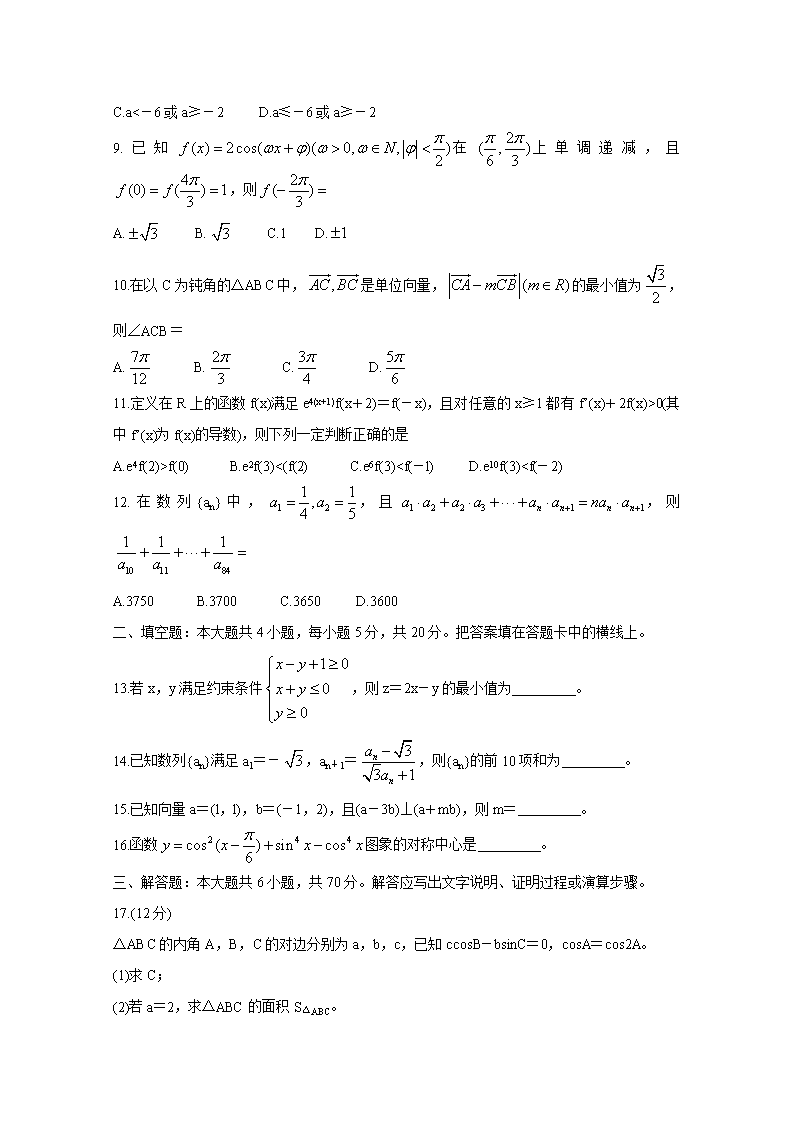 C.a<－6或a≥－2　　D.a≤－6或a≥－2
9. 已知 f(x)=2cos(ωx+φ)(ω>0,ω∈N,|φ|<π/2)在 (π/6,2π/3)上单调递减，且
f(0)=f(4π/3)=1，则f(－2π/3)=
A.±√3　　B.√3　　C.1　　D.±1
10.在以C为钝角的△ABC中，AC→,BC→是单位向量，|CA→－mCB→|(m∈R)的最小值为√3/2，
则∠ACB＝
A.7π/12　　B.2π/3　　C.3π/4　　D.5π/6
11.定义在R上的函数f(x)满足e⁴⁽ˣ⁺¹⁾f(x＋2)＝f(－x)，且对任意的x≥1都有f'(x)＋2f(x)>0(其
中f'(x)为f(x)的导数)，则下列一定判断正确的是
A.e⁴f(2)>f(0)　　B.e²f(3)<(f(2)　　C.e⁶f(3)<f(－1)　　D.e¹⁰f(3)<f(－2)
12. 在数列{aₙ}中，a₁=1/4,a₂=1/5，且a₁·a₂+a₂·a₃+⋯+aₙ·aₙ₊₁=na₁·aₙ₊₁，则
1/a₁₀+1/a₁₁+⋯+1/a₈₄=
A.3750　　B.3700　　C.3650　　D.3600
二、填空题：本大题共4小题，每小题5分，共20分。把答案填在答题卡中的横线上。
13.若x，y满足约束条件{x－y+1≥0 x+y≤0 y≥0，则z＝2x－y的最小值为________。
14.已知数列{aₙ}满足a₁＝－√3，aₙ₊₁＝(aₙ－√3)/(√3aₙ+1)，则{aₙ}的前10项和为________。
15.已知向量a＝(1，1)，b＝(－1，2)，且(a－3b)⊥(a＋mb)，则m＝________。
16.函数y=cos²(x－π/6)+sin⁴x－cos⁴x图象的对称中心是________。
三、解答题：本大题共6小题，共70分。解答应写出文字说明、证明过程或演算步骤。
17.(12分)
△ABC的内角A，B，C的对边分别为a，b，c，已知ccosB－bsinC＝0，cosA＝cos2A。
(1)求C；
(2)若a＝2，求△ABC的面积S△ABC。